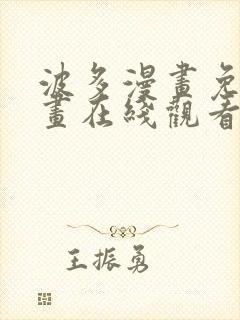 波多漫畫免
畫在綫觀看
王振勇